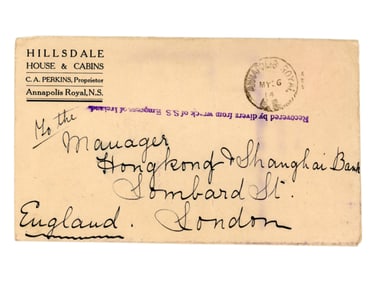 HILLSDALE
HOUSE & CABINS
C. A. PERKINS, Proprietor
Annapolis Royal, N.S.
ANNAPOLIS ROYAL
MY 26
14
N.S.
Recovered by divers from wreck of S.S. Empress of Ireland.
To the
Manager
Hongkong & Shanghai Bank
Lombard St.
England. London